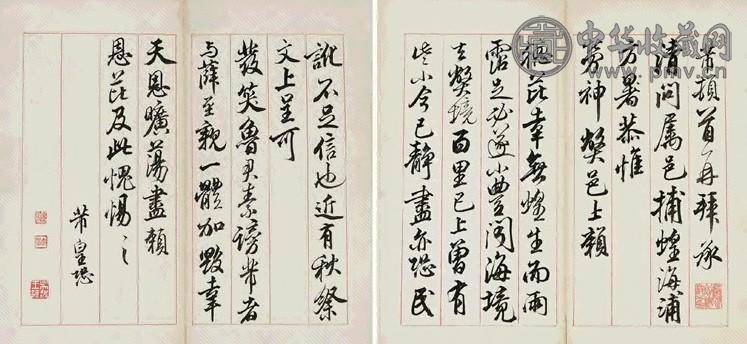 芾頓首再拜承
清問屬邑捕蝗海浦
方暑恭惟
勞神弊邑上賴
德芘幸無蝗生而雨
露足必遂小豊聞海境
去弊境百里已上曾有
些小今已靜盡亦恐民
訛不足信也近有秋祭
文上呈可
發笑魯君素謗芾者
与薛至親一體加毀幸
天恩曠蕩盡賴
恩芘及此愧惕〻
芾皇恐
中华收藏网
www.pmv.cn